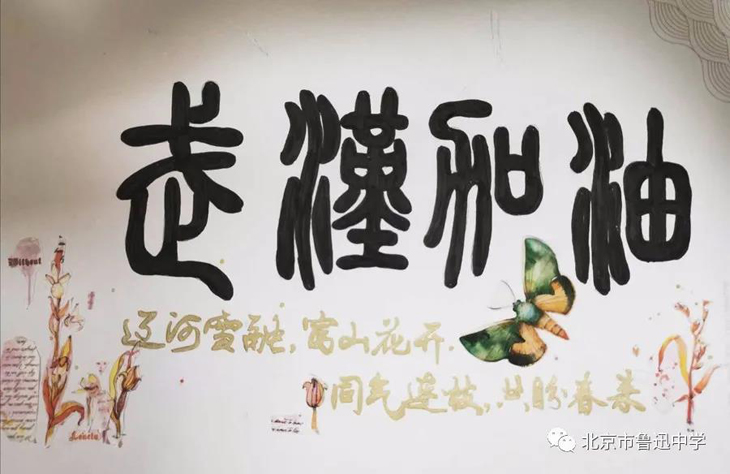 武漢加油
Without
辽河雪融，富山花开，
同气连枝，共盼春来
北京市鲁迅中学